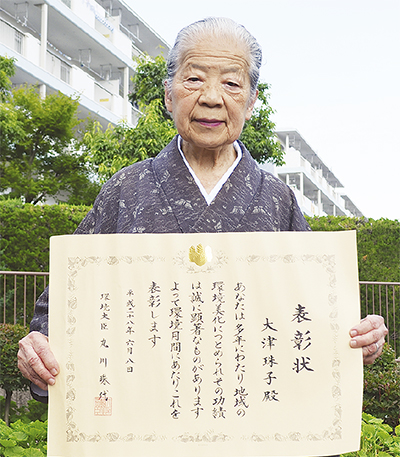 表彰状
大津珠子殿
あなたは多年にわたり地域の
環境美化につとめられその功績
は誠に顕著なものがあります
よって環境月間にあたりこれを
表彰します
平成二十八年六月八日
環境大臣 丸川珠代